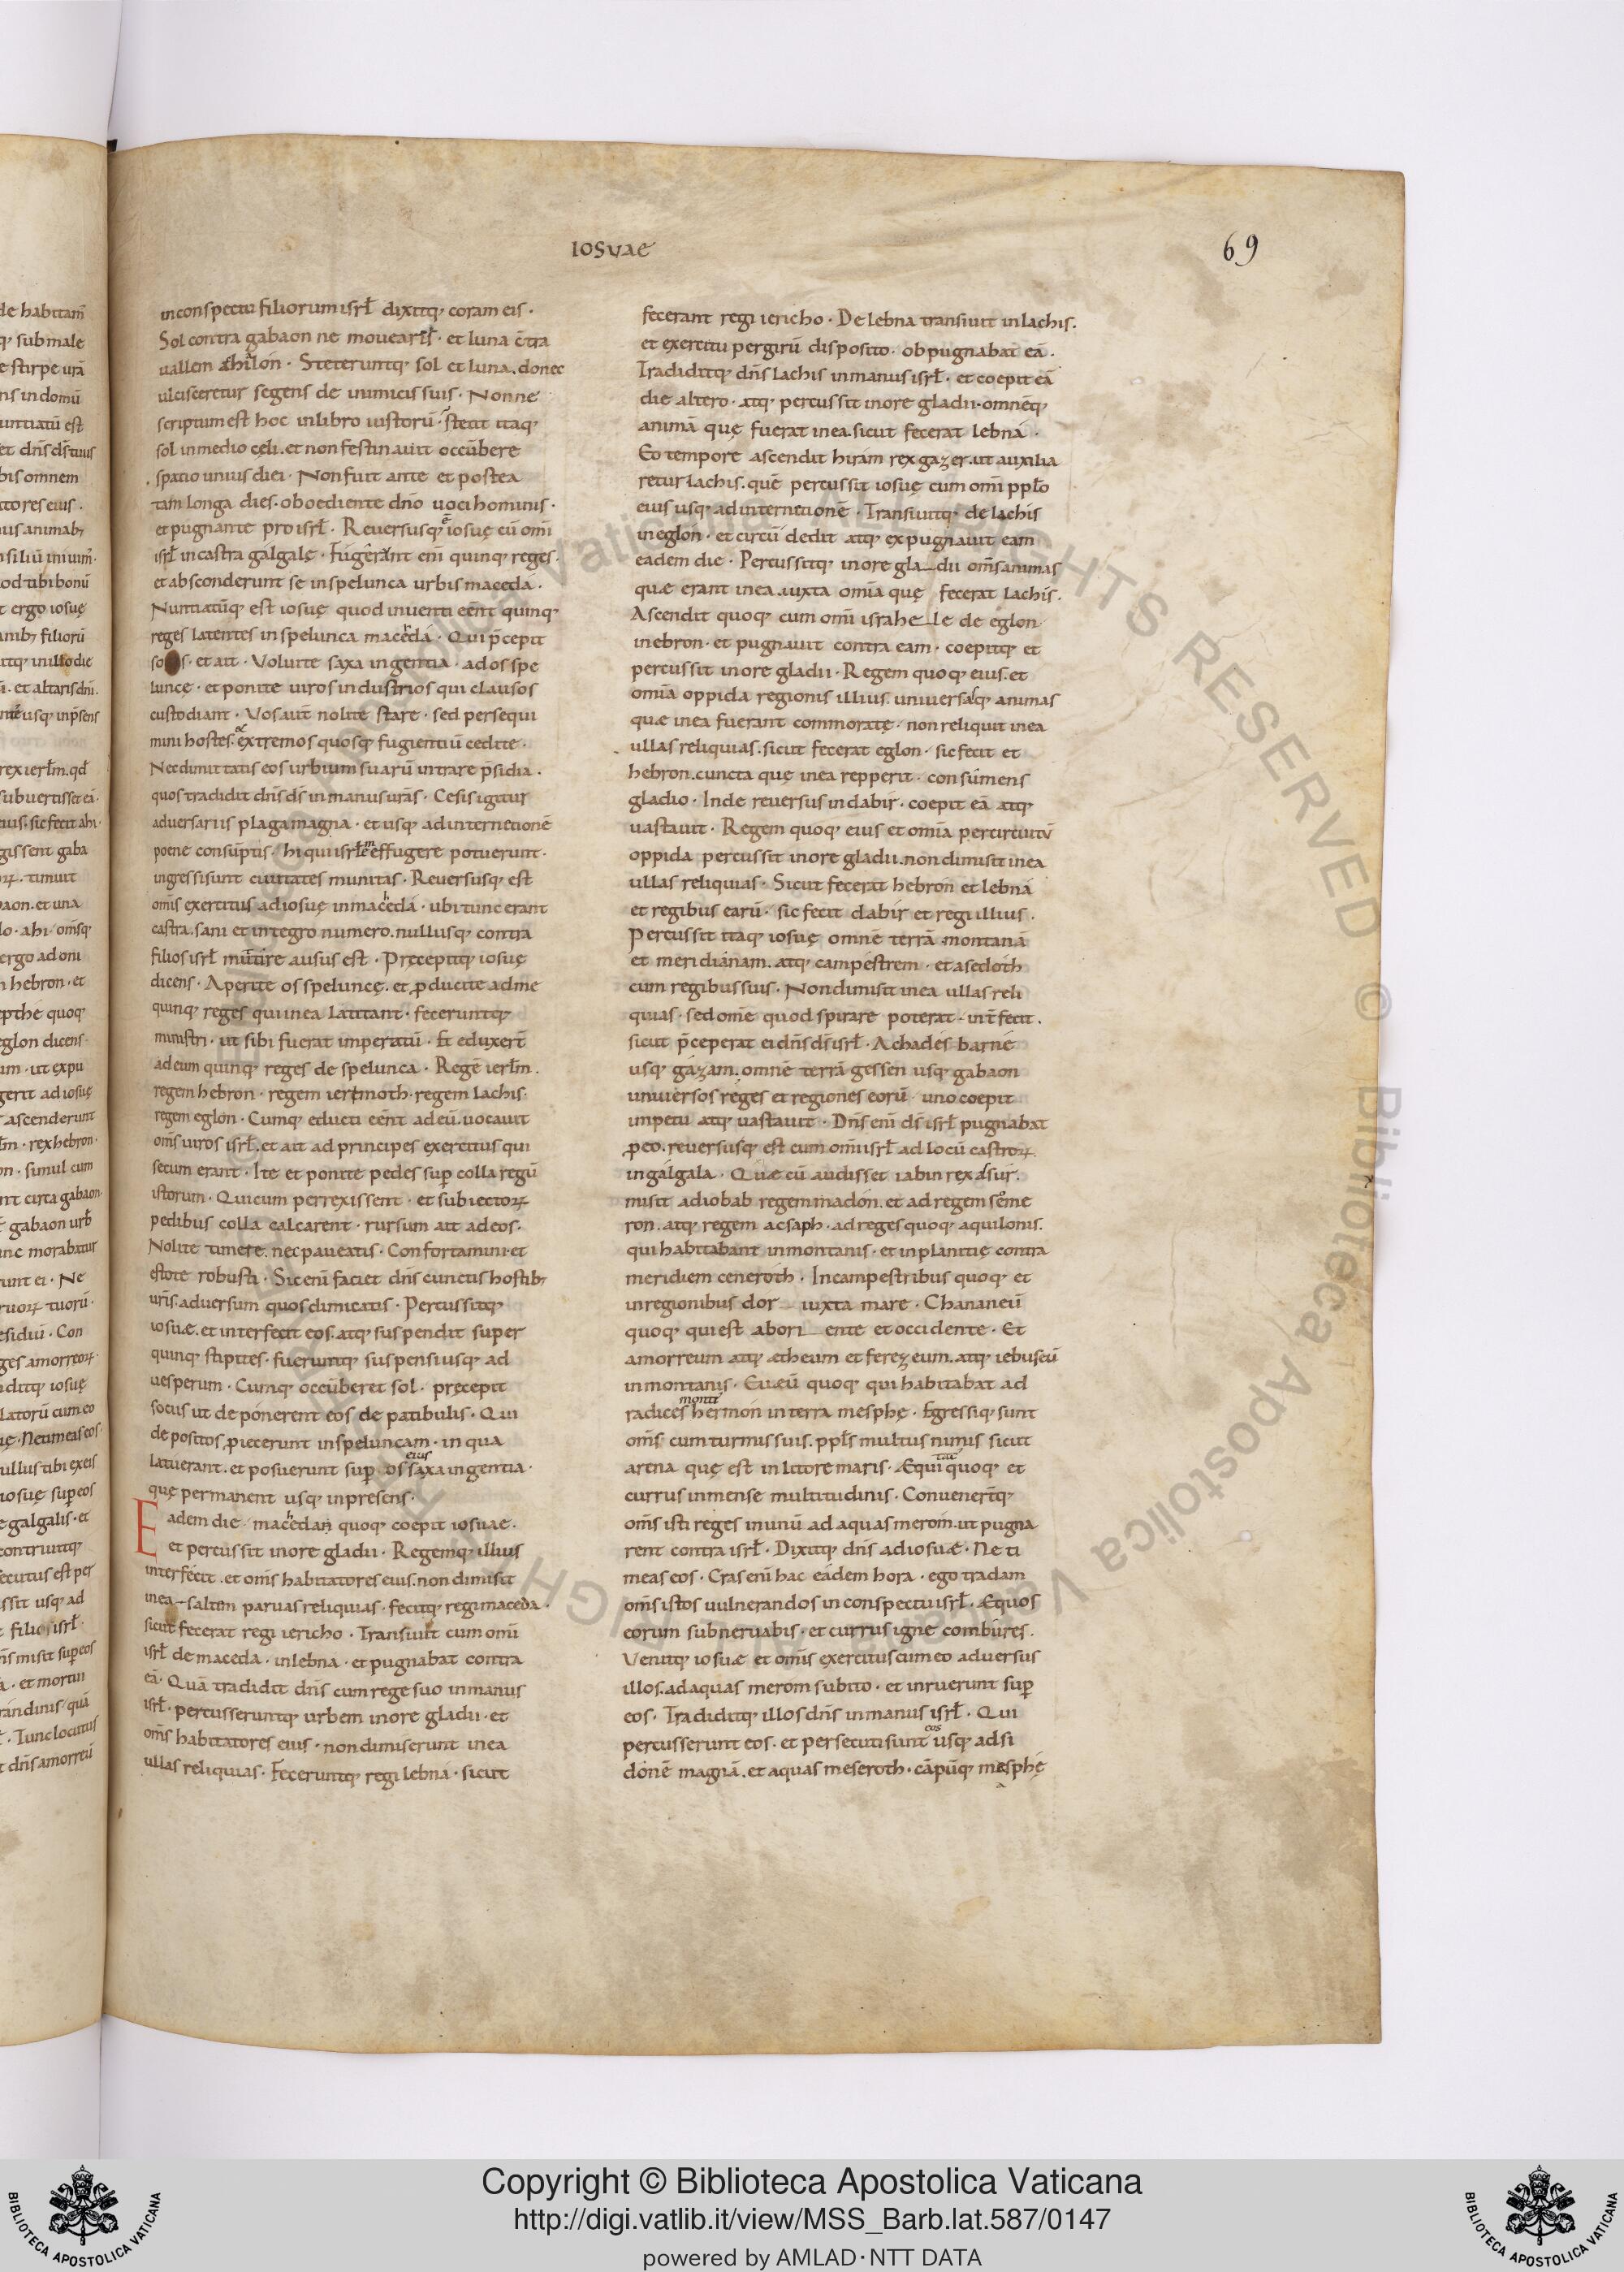 IOSVAE
69
in conspectu filiorum isrł dixitq; coram eis·
Sol contra gabaon ne movearis· et luna c̄tra
vallem ahilón· Steteruntq; sol et luna. donec
ulcisceretur segens de inimicis suis· Nonne
scriptum est hoc in libro iustorū· Stetit itaq;
sol in medio cęli. et non festinavit occūbere
spatio unius diei· Non fuit ante et postea
tam longa dies. oboediente dño voci hominis·
et pugnante pro isrł· Reversusq; ē iosuę cū omī
isrł in castra galgalę· Fugerant enī quinq; reges·
et absconderunt se in spelunca urbis maceda·
Nuntiatūq; est iosuę quod inventi eēnt quinq;
reges latentes in spelunca maceda· Qui p̄cepit
et ait· Volvite saxa ingentia· ad os spe
luncę· et ponite viros industrios qui clausos
custodiant· Vos aut̄ nolite stare· sed persequi
mini hostes. ac extremos quosq; fugientiū cedite·
Nec dimittatis eos urbium suarū intrare p̄sidia·
quos tradidit dñs ds̄ in manus urās· Cesis igitur
adversariis plaga magna· et usq; ad internetionē
poene consūptis· hi qui isrłem effugere potuerunt·
ingressi sunt civitates munitas· Reversusq; est
omīs exercitus ad iosuę in macheda· ubi tunc erant
castra. sani et integro numero. nullusq; contra
filios isrł mutire ausus est· Pręcepitq; iosuę
dicens· Aperite os speluncę. et producite ad me
quinq; reges qui in ea latitant· feceruntq;
ministri· ut sibi fuerat imperatū· Et eduxert̄
ad eum quinq; reges de spelunca· Regē ierłm·
regem hebron· regem ierimoth· regem lachis·
regem eglon· Cumq; educti eēnt ad eū. vocavit
omīs viros isrł. et ait ad principes exercitus qui
secum erant· Ite et ponite pedes sup̄ colla regū
istorum· Qui cum perrexissent· et subiectorꝝ
pedibus colla calcarent· rursum ait ad eos·
Nolite timere. nec paveatis· Confortamini· et
estote robusti· Sic enī faciet dñs cunctis hostib;
uris. adversum quos dimicatis· Percussitq;
iosuae. et interfecit eos. atq; suspendit super
quinq; stipites· fueruntq; suspensi usq; ad
vesperum· Cumq; occūberet sol· pręcepit
sociis ut deponerent eos de patibulis· Qui
depositos proiecerunt in speluncam· in qua
latuerant. et posuerunt sup̄ os eius saxa ingentia·
quę permanent usq; in presens·
Eadem die· machedan quoq; coepit iosuae·
et percussit in ore gladii· Regemq; illius
interfecit. et omīs habitatores eius. non dimisit
in ea saltem parvas reliquias· fecitq; regi maceda·
sicut fecerat regi iericho· Transivit cum omī
isrł de maceda· in lebna· et pugnabat contra
eā· Quā tradidit dñs cum rege suo in manus
isrł· percusseruntq; urbem in ore gladii· et
omīs habitatores eius· non dimiserunt in ea
ullas reliquias· Feceruntq; regi lebna· sicut
fecerant regi iericho· De lebna transivit in lachis.
et exercitu per girū disposito· obpugnabat eā·
Tradiditq; dñs lachis in manus isrł· et coepit eā
die altero· atq; percussit in ore gladii· omnēq;
animā quę fuerat in ea. sicut fecerat lebna·
Eo tempore ascendit hiram rex gazer. ut auxilia
retur lachis. quē percussit iosuę cum omī ppło
eius usq; ad internetionē· Transivitq; de lachis
in eglon· et circū dedit atq; expugnavit eam
eadem die· Percussitq; in ore gladii omīs animas
quæ erant in ea. iuxta omīa quę fecerat lachis.
Ascendit quoq; cum omī israhele de eglon
in ebron· et pugnavit contra eam· coepitq; et
percussit in ore gladii· Regem quoq; eius. et
omīa oppida regionis illius. universasq; animas
quæ in ea fuerant commoratę· non reliquit in ea
ullas reliquias. sicut fecerat eglon· sic fecit et
hebron. cuncta quę in ea repperit· consūmens
gladio· Inde reversus in dabir· coepit eā atq;
vastavit· Regem quoq; eius et omīa per circuitū
oppida percussit in ore gladii. non dimisit in ea
ullas reliquias· Sicut fecerat hebron et lebna
et regibus earū· sic fecit dabir et regi illius·
Percussit itaq; iosuę omnē terrā montanā
et meridianam. atq; campestrem· et asedoth
cum regibus suis· Non dimisit in ea ullas reli
quias· sed omē quod spirare poterat· int̄fecit·
sicut p̄ceperat ei dñs ds̄ isrł· A chades barne
usq; gazam. omnē terrā gessen usq; gabaon
universos reges et regiones eorū uno coepit
impetu atq; vastavit· Dñs enī ds̄ isrł pugnabat
p̱ eo. reversusq; est cum omī isrł ad locū castrorꝝ
in galgala· Quæ cū audisset iabin rex asur·
misit ad iobab regem madon. et ad regem seme
ron. atq; regem acsaph· ad reges quoq; aquilonis.
qui habitabant in montanis· et in planitię contra
meridiem ceneroth· In campestribus quoq; et
in regionibus dor iuxta mare· Chananeū
quoq; qui est ab oriente et occidente· Et
amorreum atq; ætheum et ferezeum. atq; iebuseū
in montanis· Eueū quoq; qui habitabat ad
radices montis hermon in terra mesphę· Egressiq; sunt
omīs cum turmis suis. pplīs multus nimis sicut
arena quę est in litore maris· Æquitatū quoq; et
currus inmense multitudinis· Convenert̄q;
omīs isti reges in unū ad aquas merom. ut pugna
rent contra isrł· Dixitq; dñs ad iosuæ· Ne ti
meas eos· Cras enī hac eadem hora· ego tradam
omīs istos vulnerandos in conspectu isrł· Æquos
eorum subnervabis· et currus igne combures.
Venitq; iosuæ et omīs exercitus cum eo adversus
illos. ad aquas merom subito· et inruerunt sup̄
eos· Tradiditq; illos dñs in manus isrł· Qui
percusserunt eos. et persecuti sunt eos usq; ad si
donē magnā. et aquas meseroth· cāpūq; mesphę
Copyright © Biblioteca Apostolica Vaticana
http://digi.vatlib.it/view/MSS_Barb.lat.587/0147
powered by AMLAD·NTT DATA
BIBLIOTECA APOSTOLICA VATICANA
BIBLIOTECA APOSTOLICA VATICANA